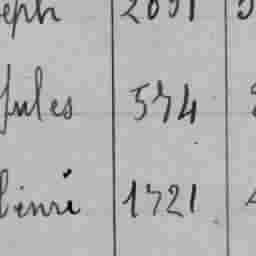 eph 2091
Jules 574
Henri 1721